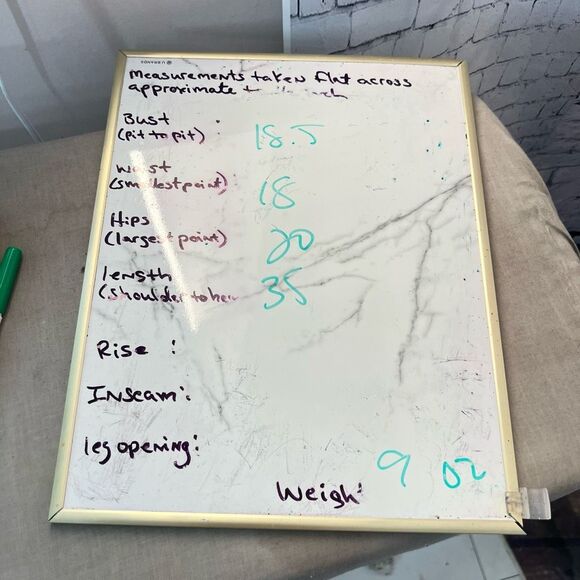 U BRANDS
Measurements taken flat across
approximate
Bust
(pit to pit) : 18.5
Waist
(smallest point) 18
Hips
(largest point) 20
length
(shoulder to hem 35
Rise :
Inseam:
leg opening:
9 oz
Weigh